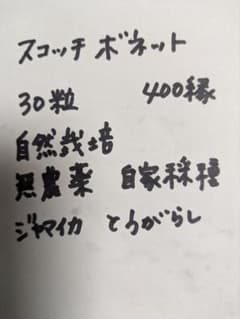 スコッチ ボネット
30粒 400縁
自然栽培
無農薬 自家採種
ジャマイカ とうがらし